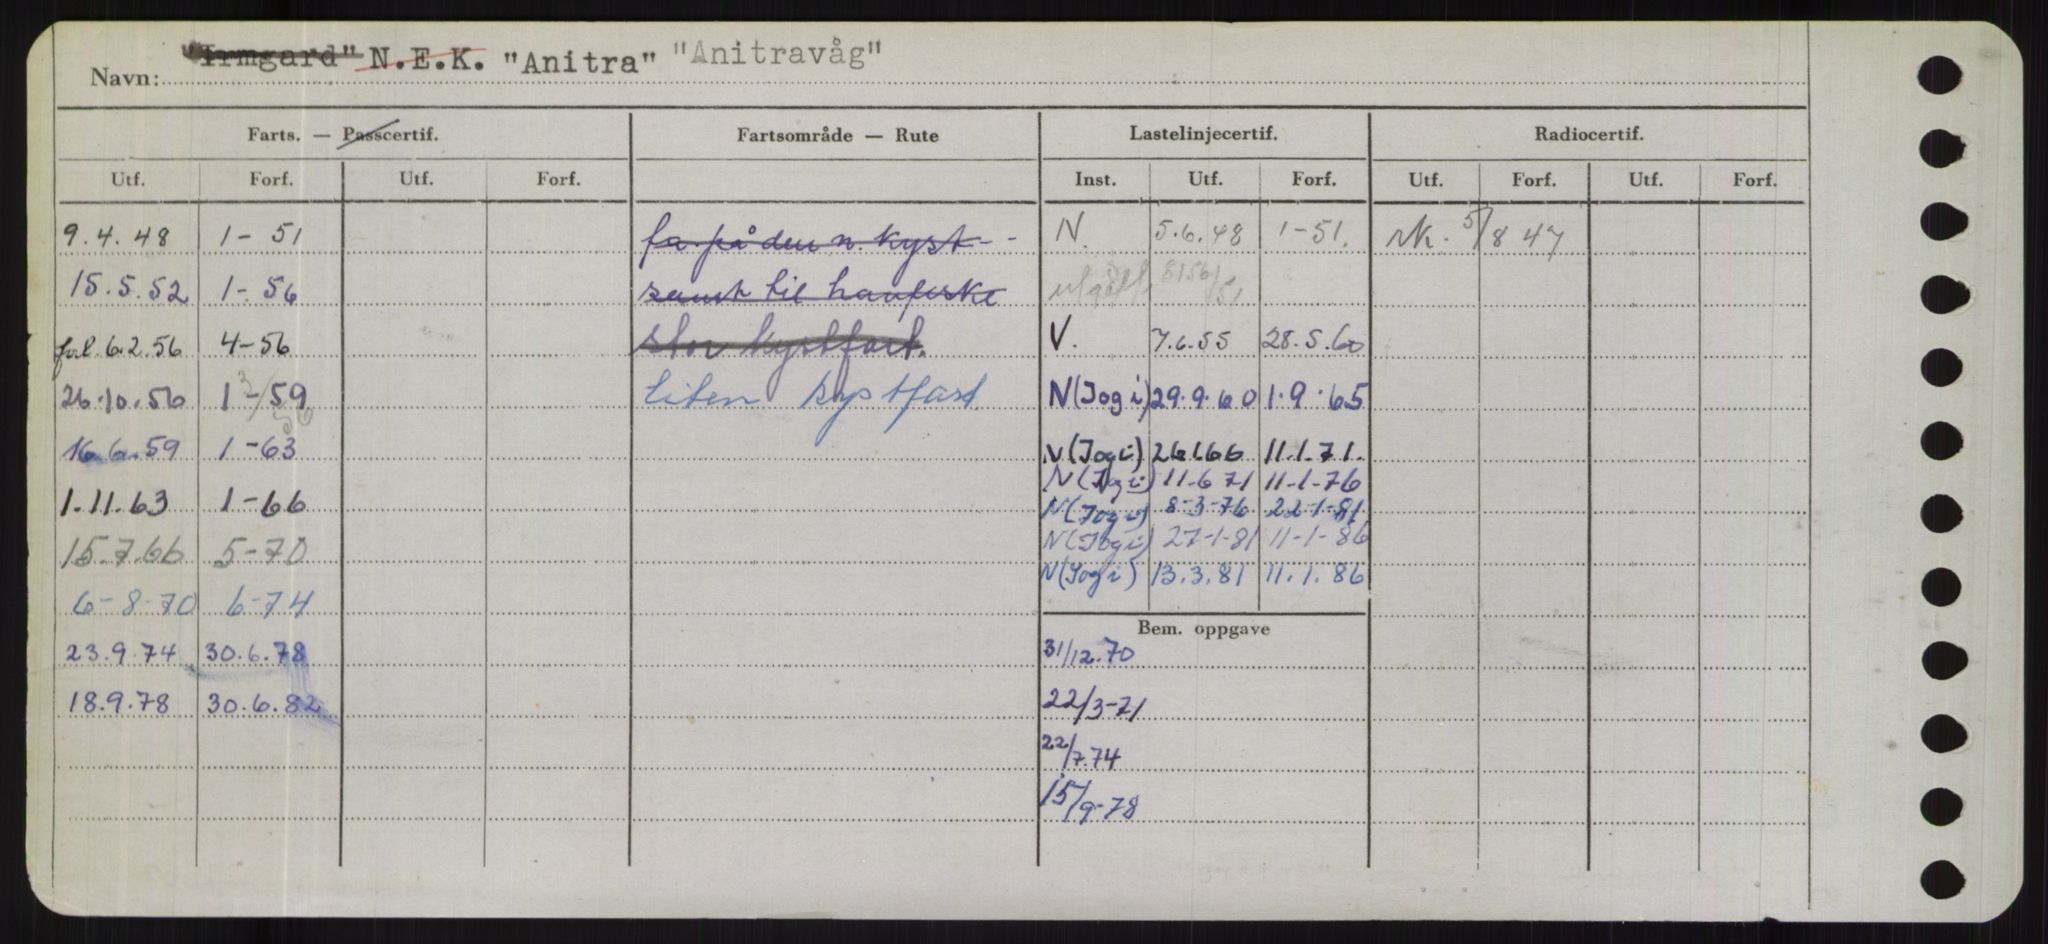 Navn: "Irmgard" N.E.K. "Anitra" "Anitravåg"
Farts. — Passcertif. Fartsområde — Rute Lastelinjecertif. Radiocertif.
Utf. Forf. Utf. Forf. Inst. Utf. Forf. Utf. Forf. Utf. Forf.
9.4.48 1-51 fa. på den n. kyst- - N. 5.6.48 1-51. 5/8 47
15.5.52 1-56 samt til havfiske utgått
6.2.56 4-56 stor kystfart. V. 7.6.55 28.5.60
26.10.56 1-59 liten kystfart. N(Jogi) 29.9.60 1.9.65
16.6.59 1-63 N(Jogi) 26166 11.1.71.
N(Jogi) 11.6 71 11-1-76
1.11.63 1-66 N(Jogi) 8-3-76 22-1-81
15.7.66 5-70 N(Jogi) 27-1-81 11-1-86
N(Jogi) 13.3.81 11.1.86
6-8-70 6-74
Bem. oppgave
23.9.74 30.6.78 31/12.70
18.9.78 30.6.82 22/3-71
22/7.74
15/9-78